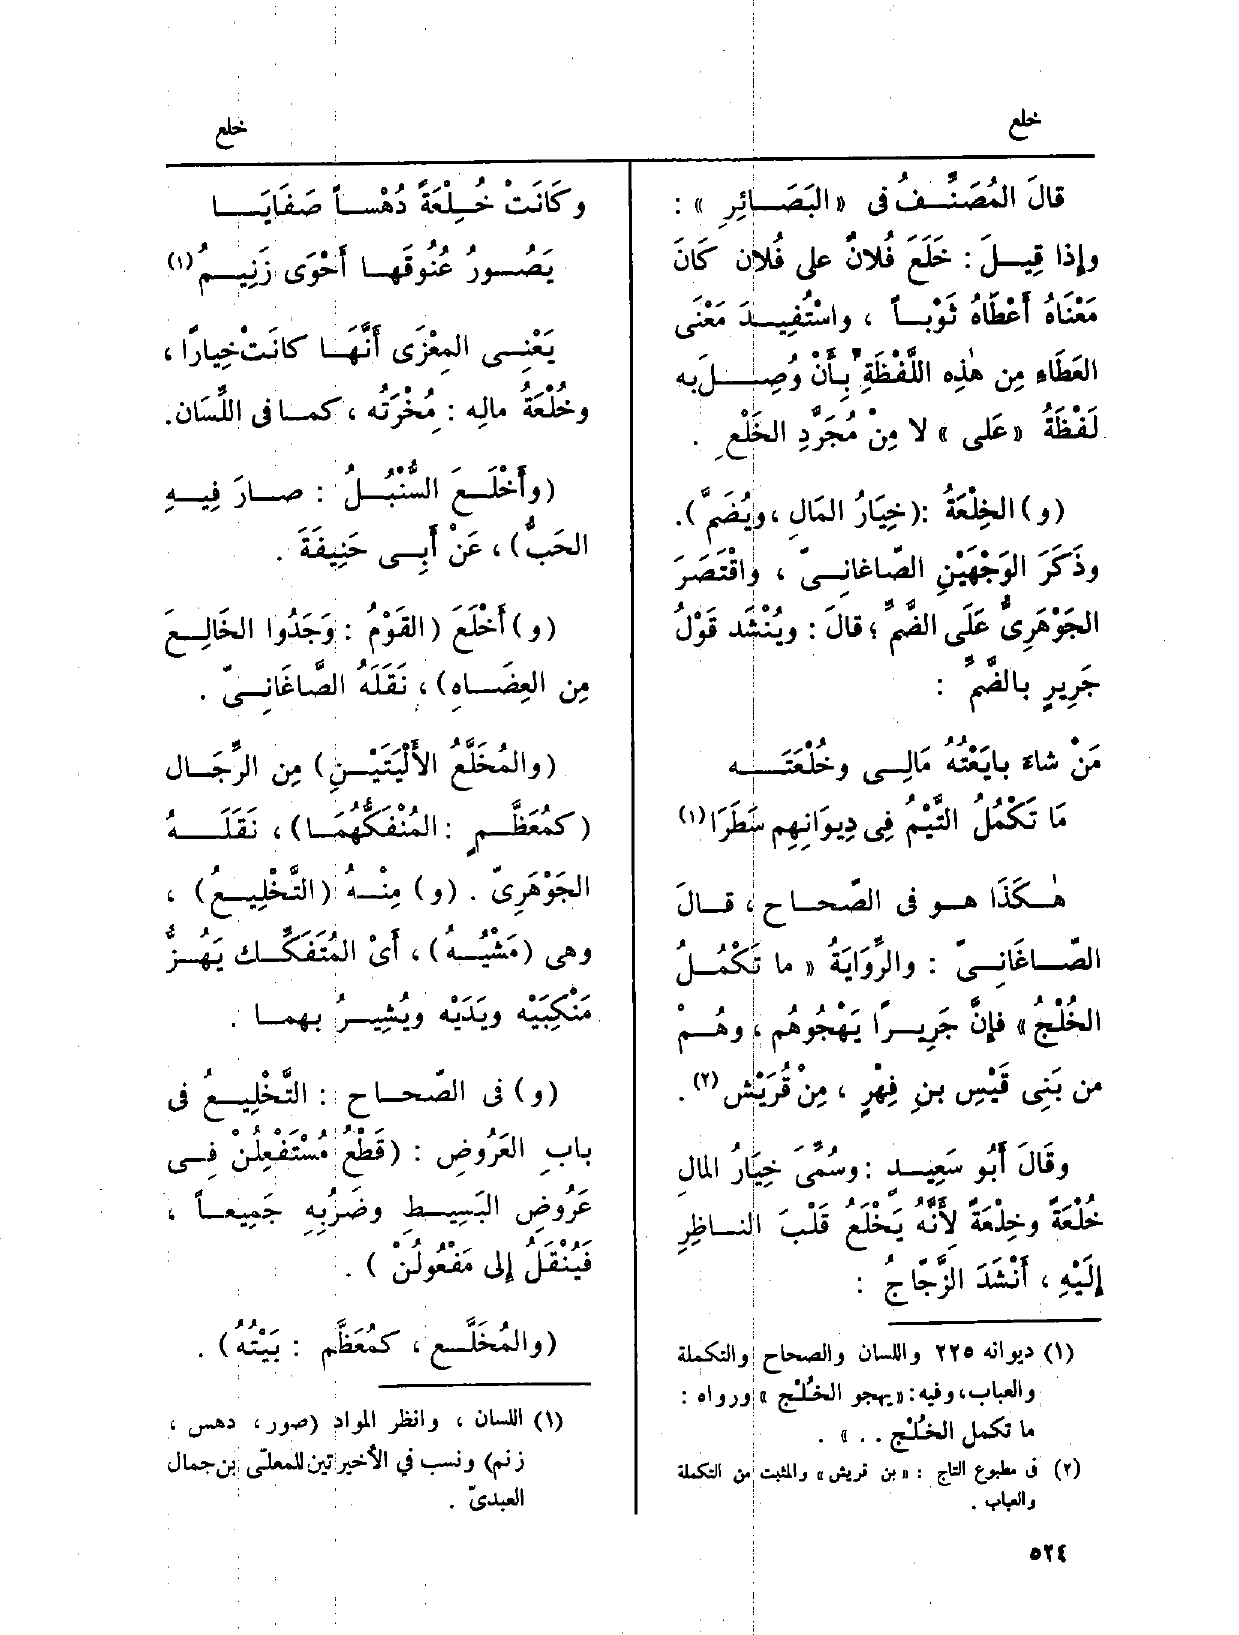 خلع
خلع
قالَ المُصَنِّفُ فى «البَصَائِرِ» :
وإذا قِيلَ : خَلَعَ فُلانٌ على فُلان كَانَ
مَعْنَاهُ أَعْطَاهُ ثَوْباً ، واسْتُفِيدَ مَعْنَى
العَطَاءِ مِن هٰذِه اللَّفْظَةِ بِأَنْ وُصِلَ به
لَفْظَةُ «عَلى» لا مِنْ مُجَرَّدِ الخَلْعِ .
(و) الخِلْعَةُ : (خِيَارُ المَالِ ، ويُضَمُّ).
وذَكَرَ الوَجْهَيْنِ الصّاغانِىّ ، واقْتَصَرَ
الجَوْهَرِىُّ عَلَى الضَّمِّ ؛ قالَ : ويُنْشَد قَوْلُ
جَرِيرٍ بالضَّمِّ :
مَنْ شاءَ بايَعْتُهُ مَالِى وخُلْعَتَه
مَا تَكْمُلُ التَّيْمُ فِى دِيوَانِهِم سَطَرَا (١)
هٰكَذَا هو فى الصّحاح ، قالَ
الصّاغَانِىّ : والرِّوَايَةُ « ما تَكْمُلُ
الخُلْجُ » فإنَّ جَرِيرًا يَهْجُوهُم ، وهُمْ
من بَنِى قَيْسِ بنِ فِهْرٍ ، مِنْ قُرَيْش (٢) .
وقَالَ أَبُو سَعِيد : وسُمِّىَ خِيَارُ المَالِ
خُلْعَةً وخِلْعَةً لِأَنَّهُ يَخْلَعُ قَلْبَ الناظِرِ
إلَيْهِ ، أَنْشَدَ الزَّجّاجُ :
(١) ديوانه ٢٢٥ واللسان والصحاح والتكملة
والعباب، وفيه: « يهجو الخُلْج » ورواه :
ما تكمل الخُلْج . . » .
(٢) فى مطبوع التاج : « بن قريش » والمثبت من التكملة
والعباب .
وكَانَتْ خُلْعَةً دُهْساً صَفَايَا
يَصُورُ عُنُوقَها أَحْوَى زَنِيمُ (١)
يَعْنِى المِعْزَى أَنَّهَا كانَتْ خِيارًا ،
وخُلْعَةُ مالِه : مُخْرَتُه ، كما فى اللِّسَان.
(وأَخْلَعَ السُّنْبُلُ : صارَ فِيهِ
الحَبُّ) ، عَنْ أَبِى حَنِيفَةَ .
(و) أَخْلَعَ (القَوْمُ : وَجَدُوا الخَالِعَ
مِن العِضَاهِ) ، نَقَلَهُ الصَّاغَانِىّ .
(والمُخَلَّعُ الأَلْيَتَيْنِ) مِن الرِّجَال
(كمُعَظَّمٍ : المُنْفَكُّهُمَا) ، نَقَلَهُ
الجَوْهَرِىّ . (و) مِنْهُ (التَّخْلِيعُ) ،
وهى (مَشْيُهُ) ، أَىْ المُتَفَكِّك يَهُزُّ
مَنْكِبَيْه ويَدَيْه ويُشِيرُ بهما .
(و) فى الصّحاح : التَّخْلِيعُ فى
بابِ العَرُوضِ : (قَطْعُ مُسْتَفْعِلُنْ فِى
عَرُوضِ البَسِيطِ وضَرْبِه جَمِيعاً ،
فَيُنْقَلُ إلى مَفْعُولُنْ ) .
(والمُخَلَّع ، كمُعَظَّم : بَيْتُهُ) .
(١) اللسان ، وانظر المواد (صور ، دهس ،
زنم) ونسب في الأخيرتين للمعلى بن جمال
العبدىّ .
٥٢٤